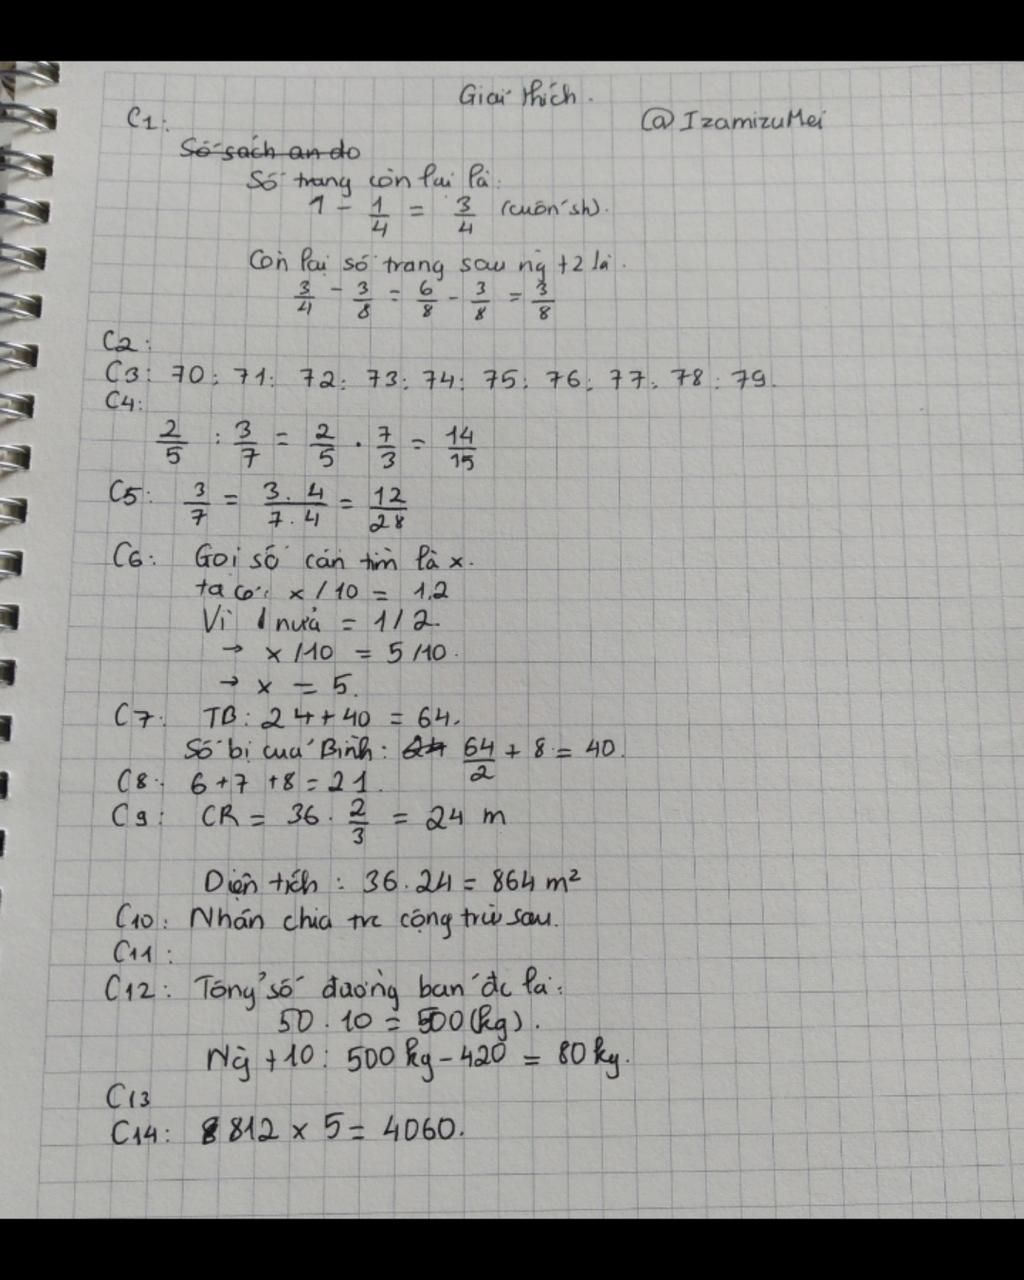 Giải thích.
@IzamizuMei
C1:
Số sách an do
Số trang còn lại là:
1 - 1/4 = 3/4 (cuốn sh).
Còn lại số trang sau ng t2 là.
3/4 - 3/8 = 6/8 - 3/8 = 3/8
C2:
C3: 70; 71; 72; 73; 74; 75; 76; 77; 78; 79.
C4:
2/5 : 3/7 = 2/5 . 7/3 = 14/15
C5: 3/7 = 3.4/7.4 = 12/28
C6: Gọi số cần tìm là x.
ta có: x/10 = 1.2
Vì 1 nửa = 1/2.
→ x/10 = 5/10.
→ x = 5.
C7: TB: 24+40 = 64.
Số bi của Bình: 64/2 + 8 = 40.
C8: 6+7+8=21.
C9: CR = 36 . 2/3 = 24 m
Diện tích: 36.24 = 864 m²
C10: Nhân chia trc cộng trừ sau.
C11:
C12: Tổng số đường bán đc là:
50.10 = 500(kg).
Ng t10: 500kg - 420 = 80kg.
C13
C14: 812 x 5 = 4060.